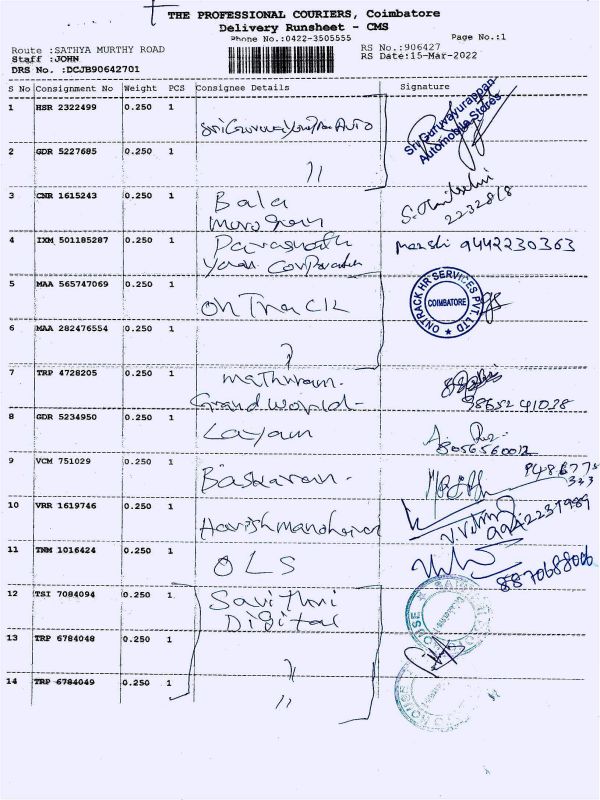 THE PROFESSIONAL COURIERS, Coimbatore
Delivery Runsheet - CMS
Phone No.:0422-3505555
Page No.:1
Route :SATHYA MURTHY ROAD
RS No.:906427
Staff :JOHN
RS Date:15-Mar-2022
DRS No. :DCJB90642701
S No Consignment No Weight PCS Consignee Details Signature
1 HSR 2322499 0.250 1
Sri Guruvayurappan
Automobile Stores
2 GDR 5227685 0.250 1 "
3 CNR 1615243 0.250 1 Bala
Murugan
2232818
4 IXM 501185287 0.250 1 Parasnath 9442230363
Corporation
5 MAA 565747069 0.250 1 OnTrack
ONTRACK HR SERVICES PVT. LTD
COIMBATORE
6 MAA 282476554 0.250 1 "
7 TRP 4728205 0.250 1 Mathuram-
Grand World- 9865241038
8 GDR 5234950 0.250 1 Layam
8056560012
9 VCM 751029 0.250 1 Baskaran-
10 VRR 1619746 0.250 1 Harish Manoharan
9942237989
11 TNM 1016424 0.250 1 OLS
8870688006
12 TSI 7084094 0.250 1 Savithri
Digital
13 TRP 6784048 0.250 1 "
14 TRP 6784049 0.250 1 "